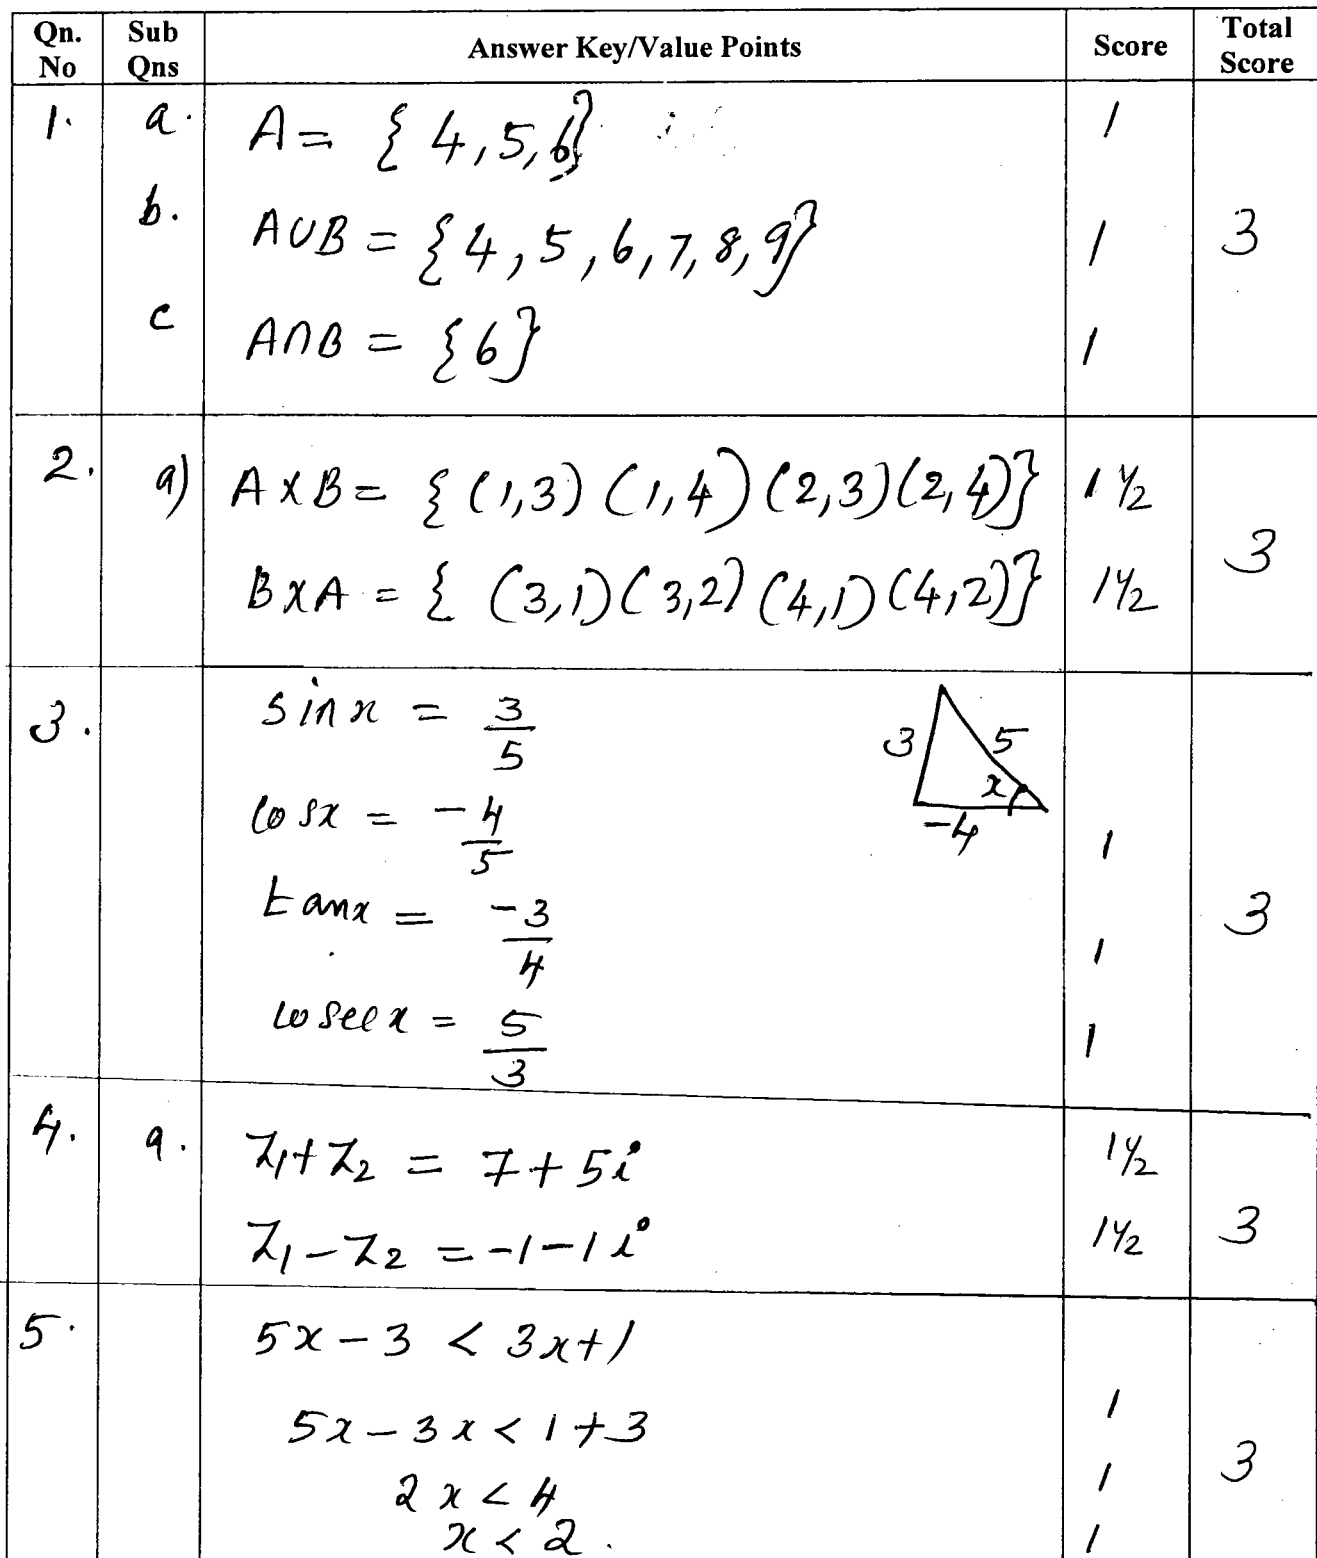 Qn. No Sub Qns Answer Key/Value Points Score Total Score
1. a. A = { 4, 5, 6} 1
b. A∪B = { 4, 5, 6, 7, 8, 9} 1 3
c A∩B = { 6 } 1
2. a) A x B = { (1,3) (1,4) (2,3) (2,4)} 1 1/2
3
B x A = { (3,1) (3,2) (4,1) (4,2)} 1 1/2
3. sin x = 3/5
3 5 x -4
cos x = -4/5 1
tan x = -3/4 1 3
cosec x = 5/3 1
4. a. Z1 + Z2 = 7 + 5i 1 1/2
Z1 - Z2 = -1 - 1i 1 1/2 3
5. 5x - 3 < 3x + 1
5x - 3x < 1 + 3 1
3
2x < 4 1
x < 2. 1